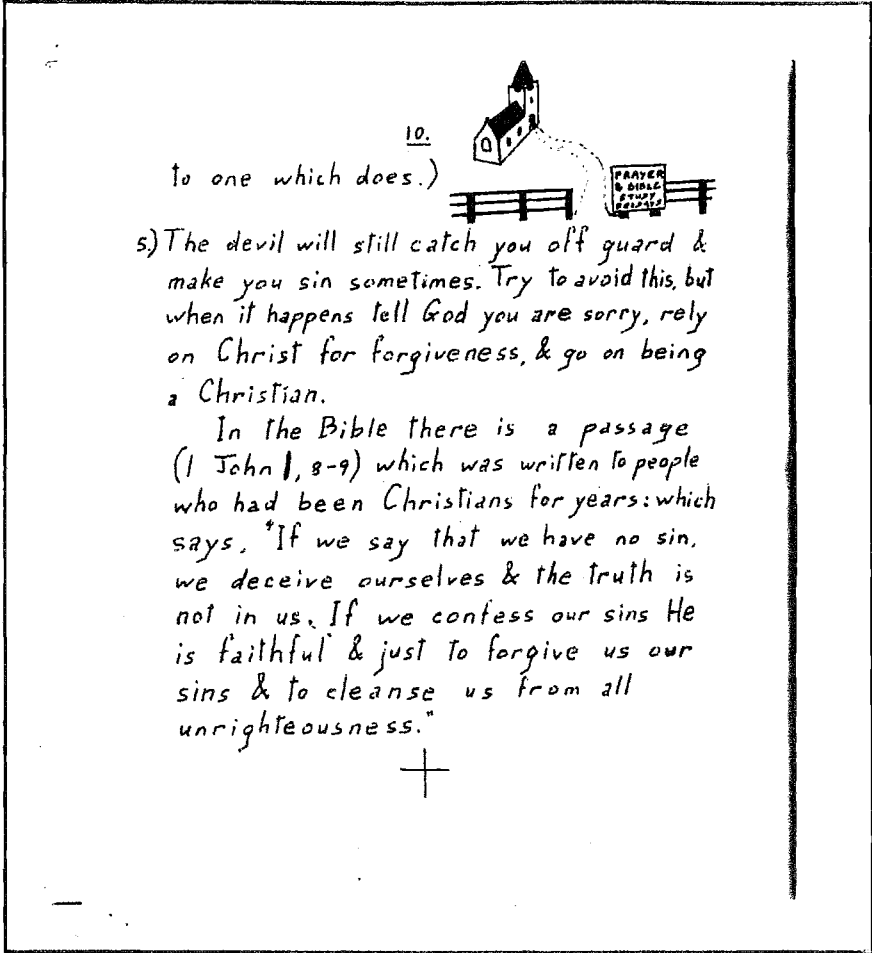 10.
to one which does.)
PRAYER
& BIBLE
STUDY
FRIDAYS
5.) The devil will still catch you off guard &
make you sin sometimes. Try to avoid this, but
when it happens tell God you are sorry, rely
on Christ for forgiveness, & go on being
a Christian.
In the Bible there is a passage
(1 John 1, 8-9) which was written to people
who had been Christians for years: which
says, "If we say that we have no sin,
we deceive ourselves & the truth is
not in us. If we confess our sins He
is faithful & just to forgive us our
sins & to cleanse us from all
unrighteousness."